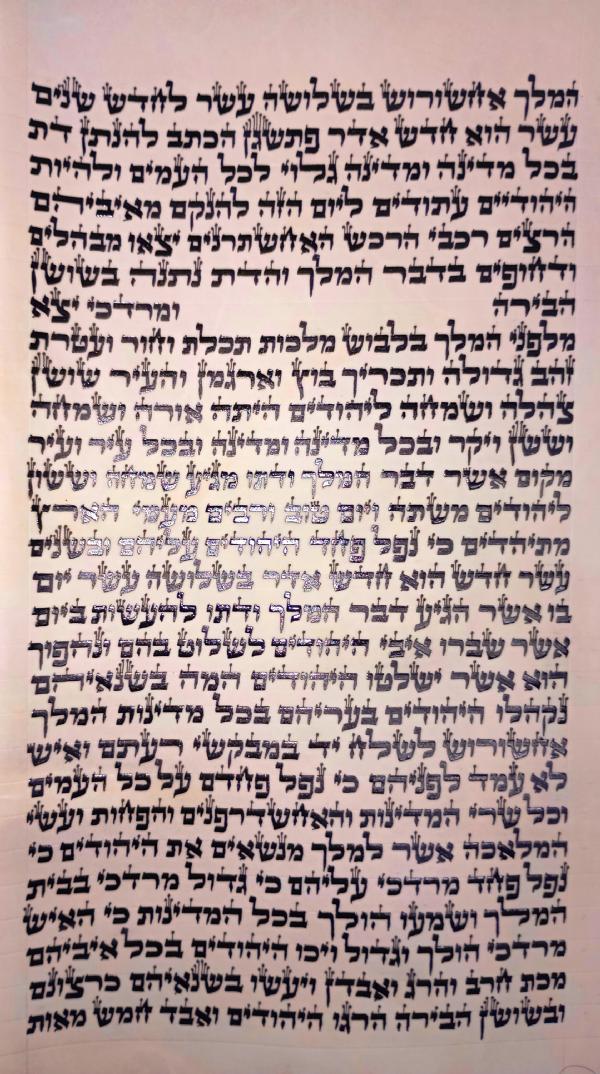 המלך אחשורוש בשלושה עשר לחדש שנים
עשר הוא חדש אדר פתשגן הכתב להנתן דת
בכל מדינה ומדינה גלוי לכל העמים ולהיות
היהודיים עתודים ליום הזה להנקם מאיביהם
הרצים רכבי הרכש האחשתרנים יצאו מבהלים
ודחופים בדבר המלך והדת נתנה בשושן
הבירה ומרדכי יצא
מלפני המלך בלבוש מלכות תכלת וחור ועטרת
זהב גדולה ותכריך בוץ וארגמן והעיר שושן
צהלה ושמחה ליהודים היתה אורה ושמחה
וששן ויקר ובכל מדינה ומדינה ובכל עיר ועיר
מקום אשר דבר המלך ודתו מגיע שמחה וששון
ליהודים משתה ויום טוב ורבים מעמי הארץ
מתיהדים כי נפל פחד היהודים עליהם ובשנים
עשר חדש הוא חדש אדר בשלושה עשר יום
בו אשר הגיע דבר המלך ודתו להעשות ביום
אשר שברו איבי היהודים לשלוט בהם ונהפוך
הוא אשר ישלטו היהודים המה בשנאיהם
נקהלו היהודים בעריהם בכל מדינות המלך
אחשורוש לשלח יד במבקשי רעתם ואיש
לא עמד לפניהם כי נפל פחדם על כל העמים
וכל שרי המדינות והאחשדרפנים והפחות ועשי
המלאכה אשר למלך מנשאים את היהודים כי
נפל פחד מרדכי עליהם כי גדול מרדכי בבית
המלך ושמעו הולך בכל המדינות כי האיש
מרדכי הולך וגדול ויכו היהודים בכל איביהם
מכת חרב והרג ואבדן ויעשו בשנאיהם כרצונם
ובשושן הבירה הרגו היהודים ואבד חמש מאות